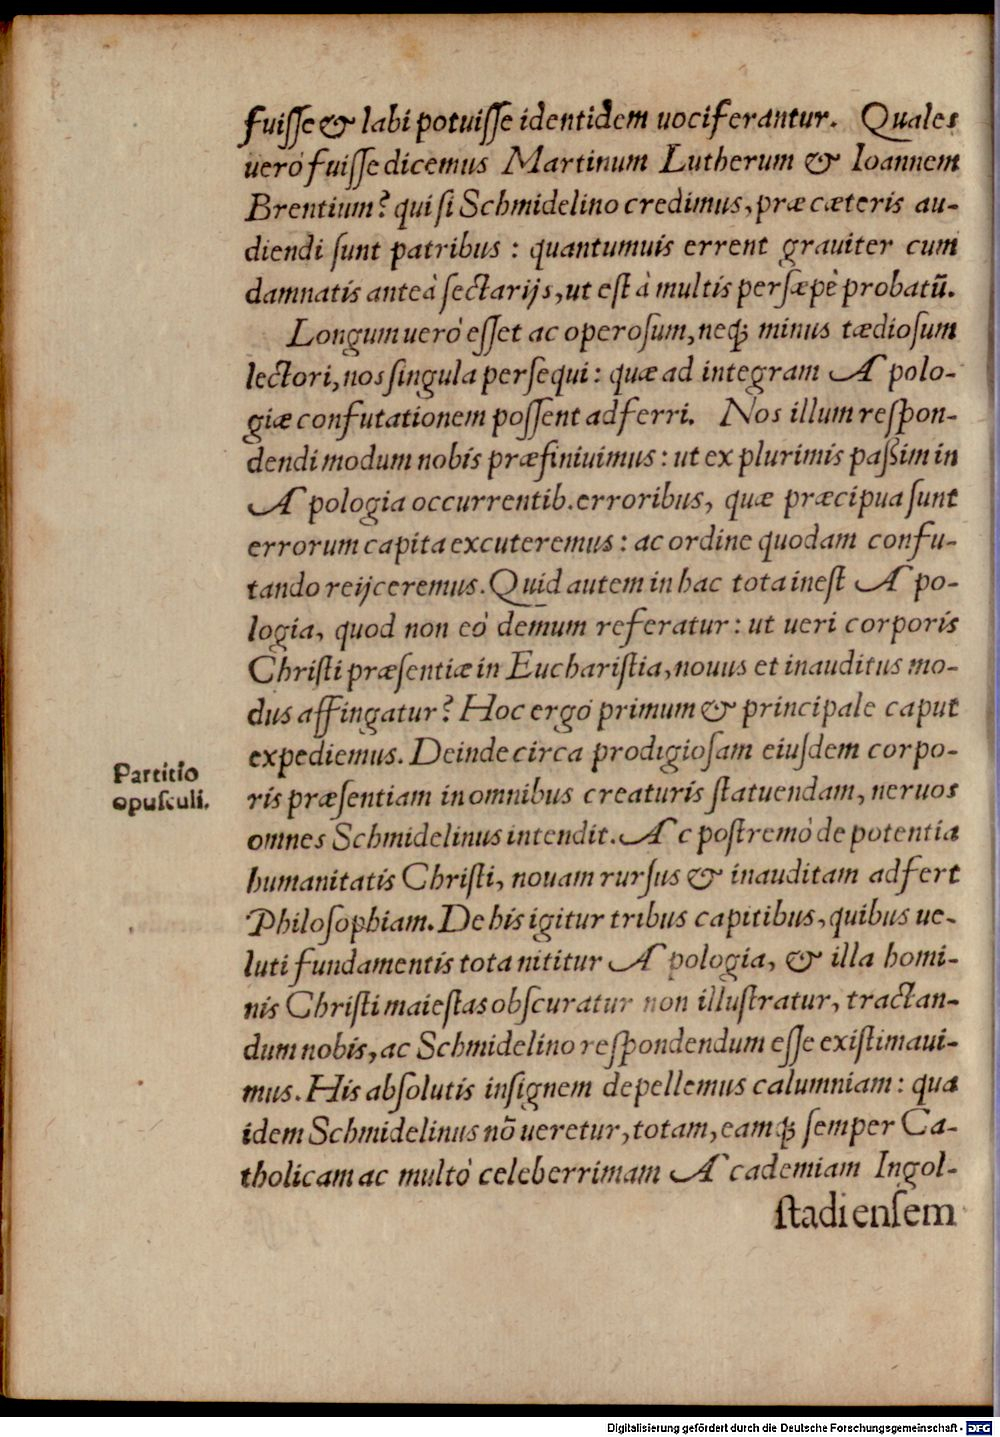 fuiſſe & labi potuiſſe identidem uociferantur. Quales
uerò fuiſſe dicemus Martinum Lutherum & Ioannem
Brentium? qui ſi Schmidelino credimus, præ cæteris au-
diendi ſunt patribus: quantumuis errent grauiter cum
damnatis anteà ſectarijs, ut eſt à multis perſæpè probatū.
Longum uerò eſſet ac operoſum, neq́ꝫ minus tædioſum
lectori, nos ſingula perſequi: quæ ad integram Apolo-
giæ confutationem poſſent adferri. Nos illum reſpon-
dendi modum nobis præfiniuimus: ut ex plurimis paßim in
Apologia occurrentib. erroribus, quæ præcipua ſunt
errorum capita excuteremus: ac ordine quodam confu-
tando reijceremus. Quid autem in hac tota ineſt Apo-
logia, quod non eò demum referatur: ut ueri corporis
Chriſti præſentiæ in Euchariſtia, nouus et inauditus mo-
dus affingatur? Hoc ergò primum & principale caput
expediemus. Deinde circa prodigioſam eiuſdem corpo-
Partitio
opuſculi.
ris præſentiam in omnibus creaturis ſtatuendam, neruos
omnes Schmidelinus intendit. Ac poſtremò de potentia
humanitatis Chriſti, nouam rurſus & inauditam adfert
Philoſophiam. De his igitur tribus capitibus, quibus ue-
luti fundamentis tota nititur Apologia, & illa homi-
nis Chriſti maieſtas obſcuratur non illuſtratur, tractan-
dum nobis, ac Schmidelino reſpondendum eſſe exiſtimaui-
mus. His abſolutis inſignem depellemus calumniam: qua
idem Schmidelinus nō ueretur, totam, eamq́ꝫ ſemper Ca-
tholicam ac multò celeberrimam Academiam Ingol-
ſtadienſem
Digitalisierung gefördert durch die Deutsche Forschungsgemeinschaft - DFG